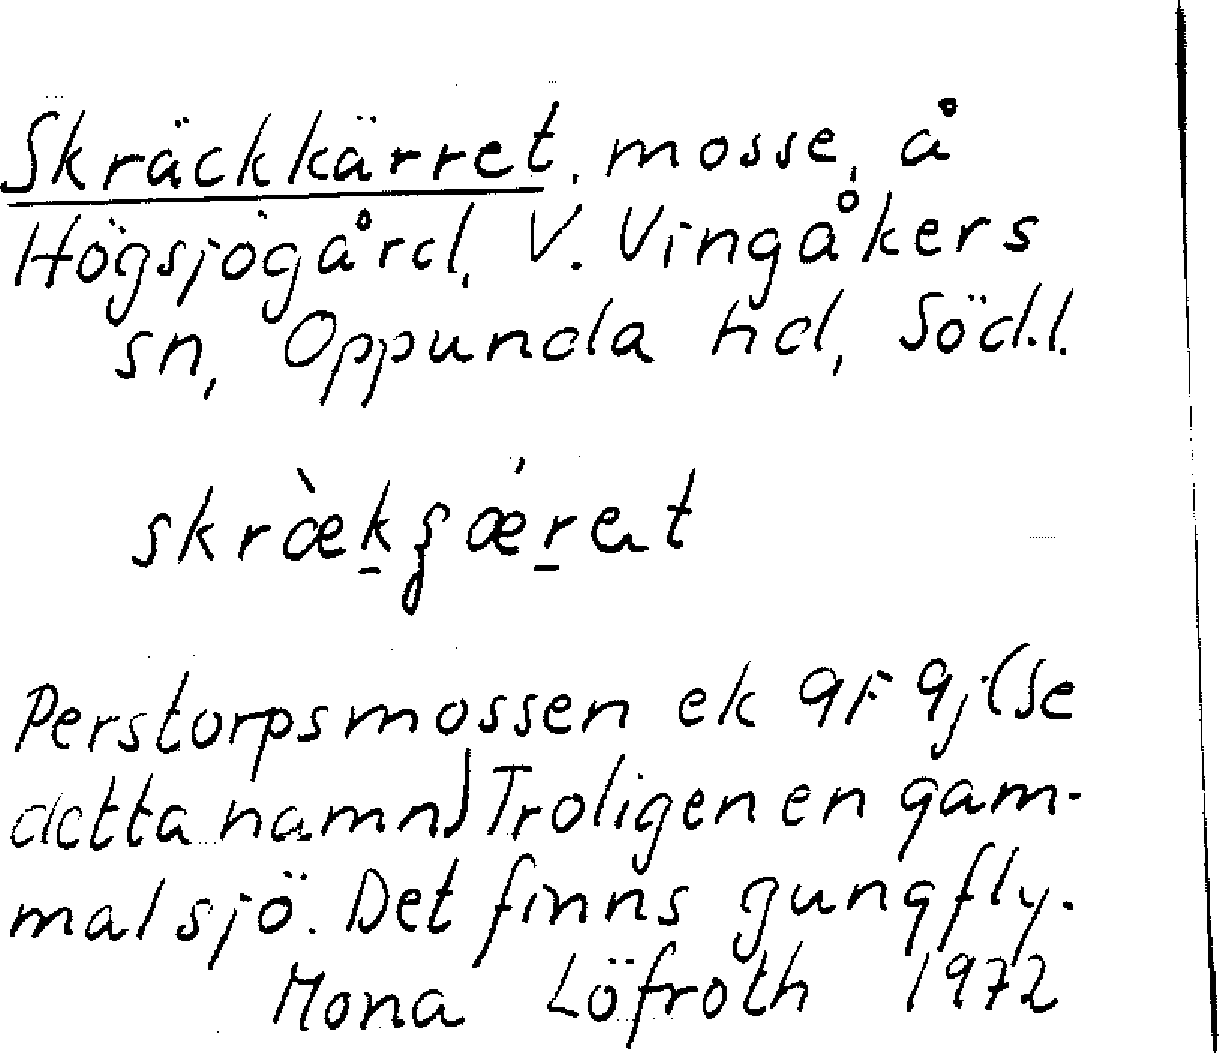 Skräckkärret, mosse, å
Högsjögård, V. Vingåkers
sn, Oppunda hd, Södl.
Perstorpsmossen ek 9F 9j (Se
detta namn) Troligen en gam-
mal sjö. Det finns gungfly.
Mona Löfroth 1972